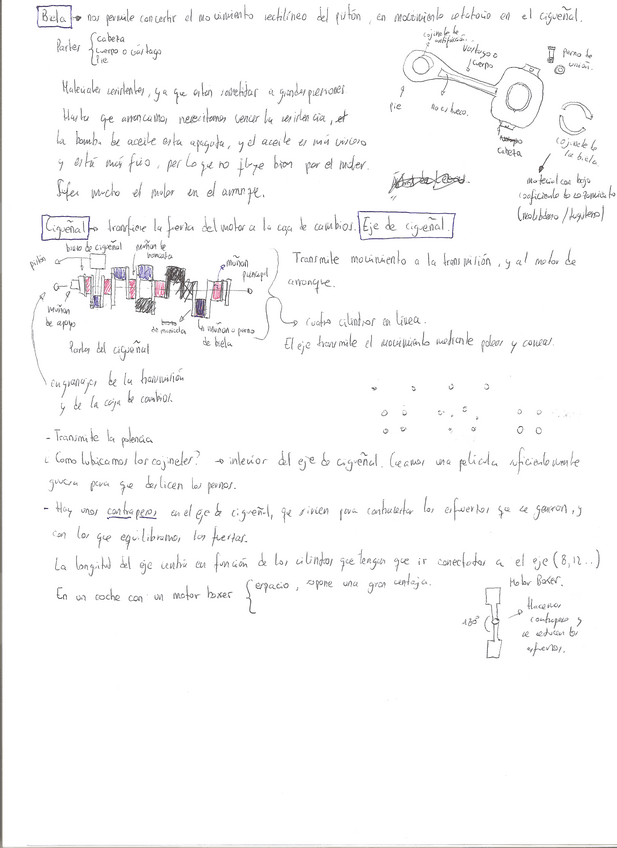 Biela → nos permite convertir el movimiento rectilíneo del pistón, en movimiento rotatorio en el cigüeñal.
Partes { cabeza
cuerpo o vástago
Pie
cojinete de
vástago o
cuerpo
perno de
unión.
pie
no es hueco.
cabeza
cojinete de
la biela
material con bajo
coeficiente de rozamiento
(molibdeno / tugsteno)
Materiales resistentes, ya que están sometidas a grandes presiones
Hasta que arrancamos necesitamos vencer la resistencia,
la bomba de aceite esta apagada, y el aceite es más viscoso
y está más frío, por lo que no fluye bien por el motor.
Sufre mucho el motor en el arranque.
Cigüeñal → transfiere la fuerza del motor a la caja de cambios. Eje de cigüeñal.
brazo de cigüeñal
muñón de
pistón
muñón
principal
muñón
de apoyo
muñón o perno
de biela
Partes del cigüeñal
Transmite movimiento a la transmisión, y al motor de
arranque.
→ cuatro cilindros en línea.
El eje transmite el movimiento mediante poleas y correas.
engranajes de la transmisión
y de la caja de cambios.
- Transmite la potencia
¿Como lubicamos los cojinetes? → interior del eje de cigüeñal. Creamos una película suficientemente
gruesa para que deslicen los pernos.
- Hay unos contrapesos en el eje de cigüeñal, que sirven para contrarrestar los esfuerzos que se generan, y
con los que equilibramos las fuerzas.
La longitud del eje en función de los cilindros que tengan que ir conectados a el eje (8,12...)
En un coche con un motor boxer { espacio, supone una gran ventaja.
Motor Boxer.
180°
→ Hacemos
contrapeso y
se reducen los
esfuerzos.